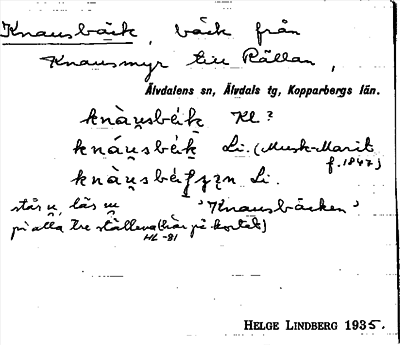 Knausbäck, bäck från
Knausmyr till Rällan,
Älvdalens sn, Älvdals tg, Kopparbergs län.
knàu̯sbék̬ Kl?
knáu̯sbék̬ Li. (Musk-Marit
f. 1847)
knàu̯sbé Li.
står u̯, läs
'Knausbäcken'
på alla tre ställena (här på kortet)
HL -81
HELGE LINDBERG 1935.